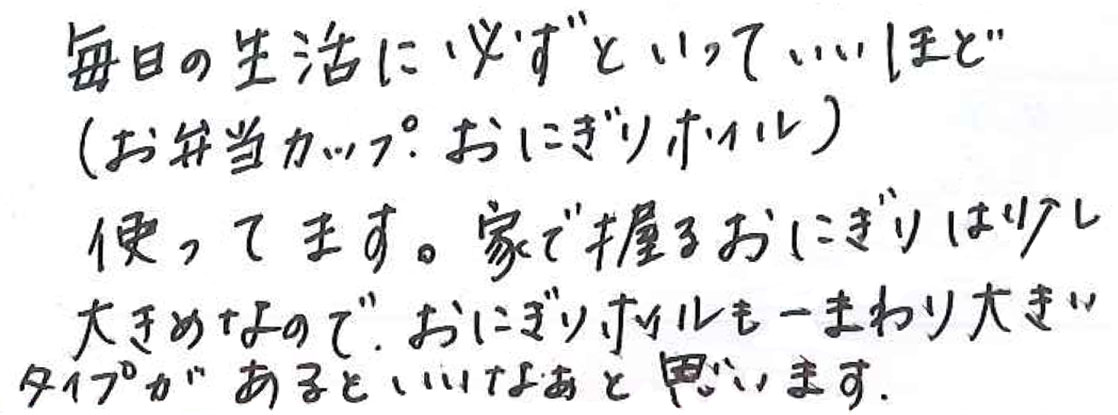 毎日の生活に必ずといっていいほど
(お弁当カップ.おにぎりホイル)
使ってます。家で握るおにぎりは少し
大きめなので.おにぎりホイルも一まわり大きい
タイプがあるといいなぁと思います.